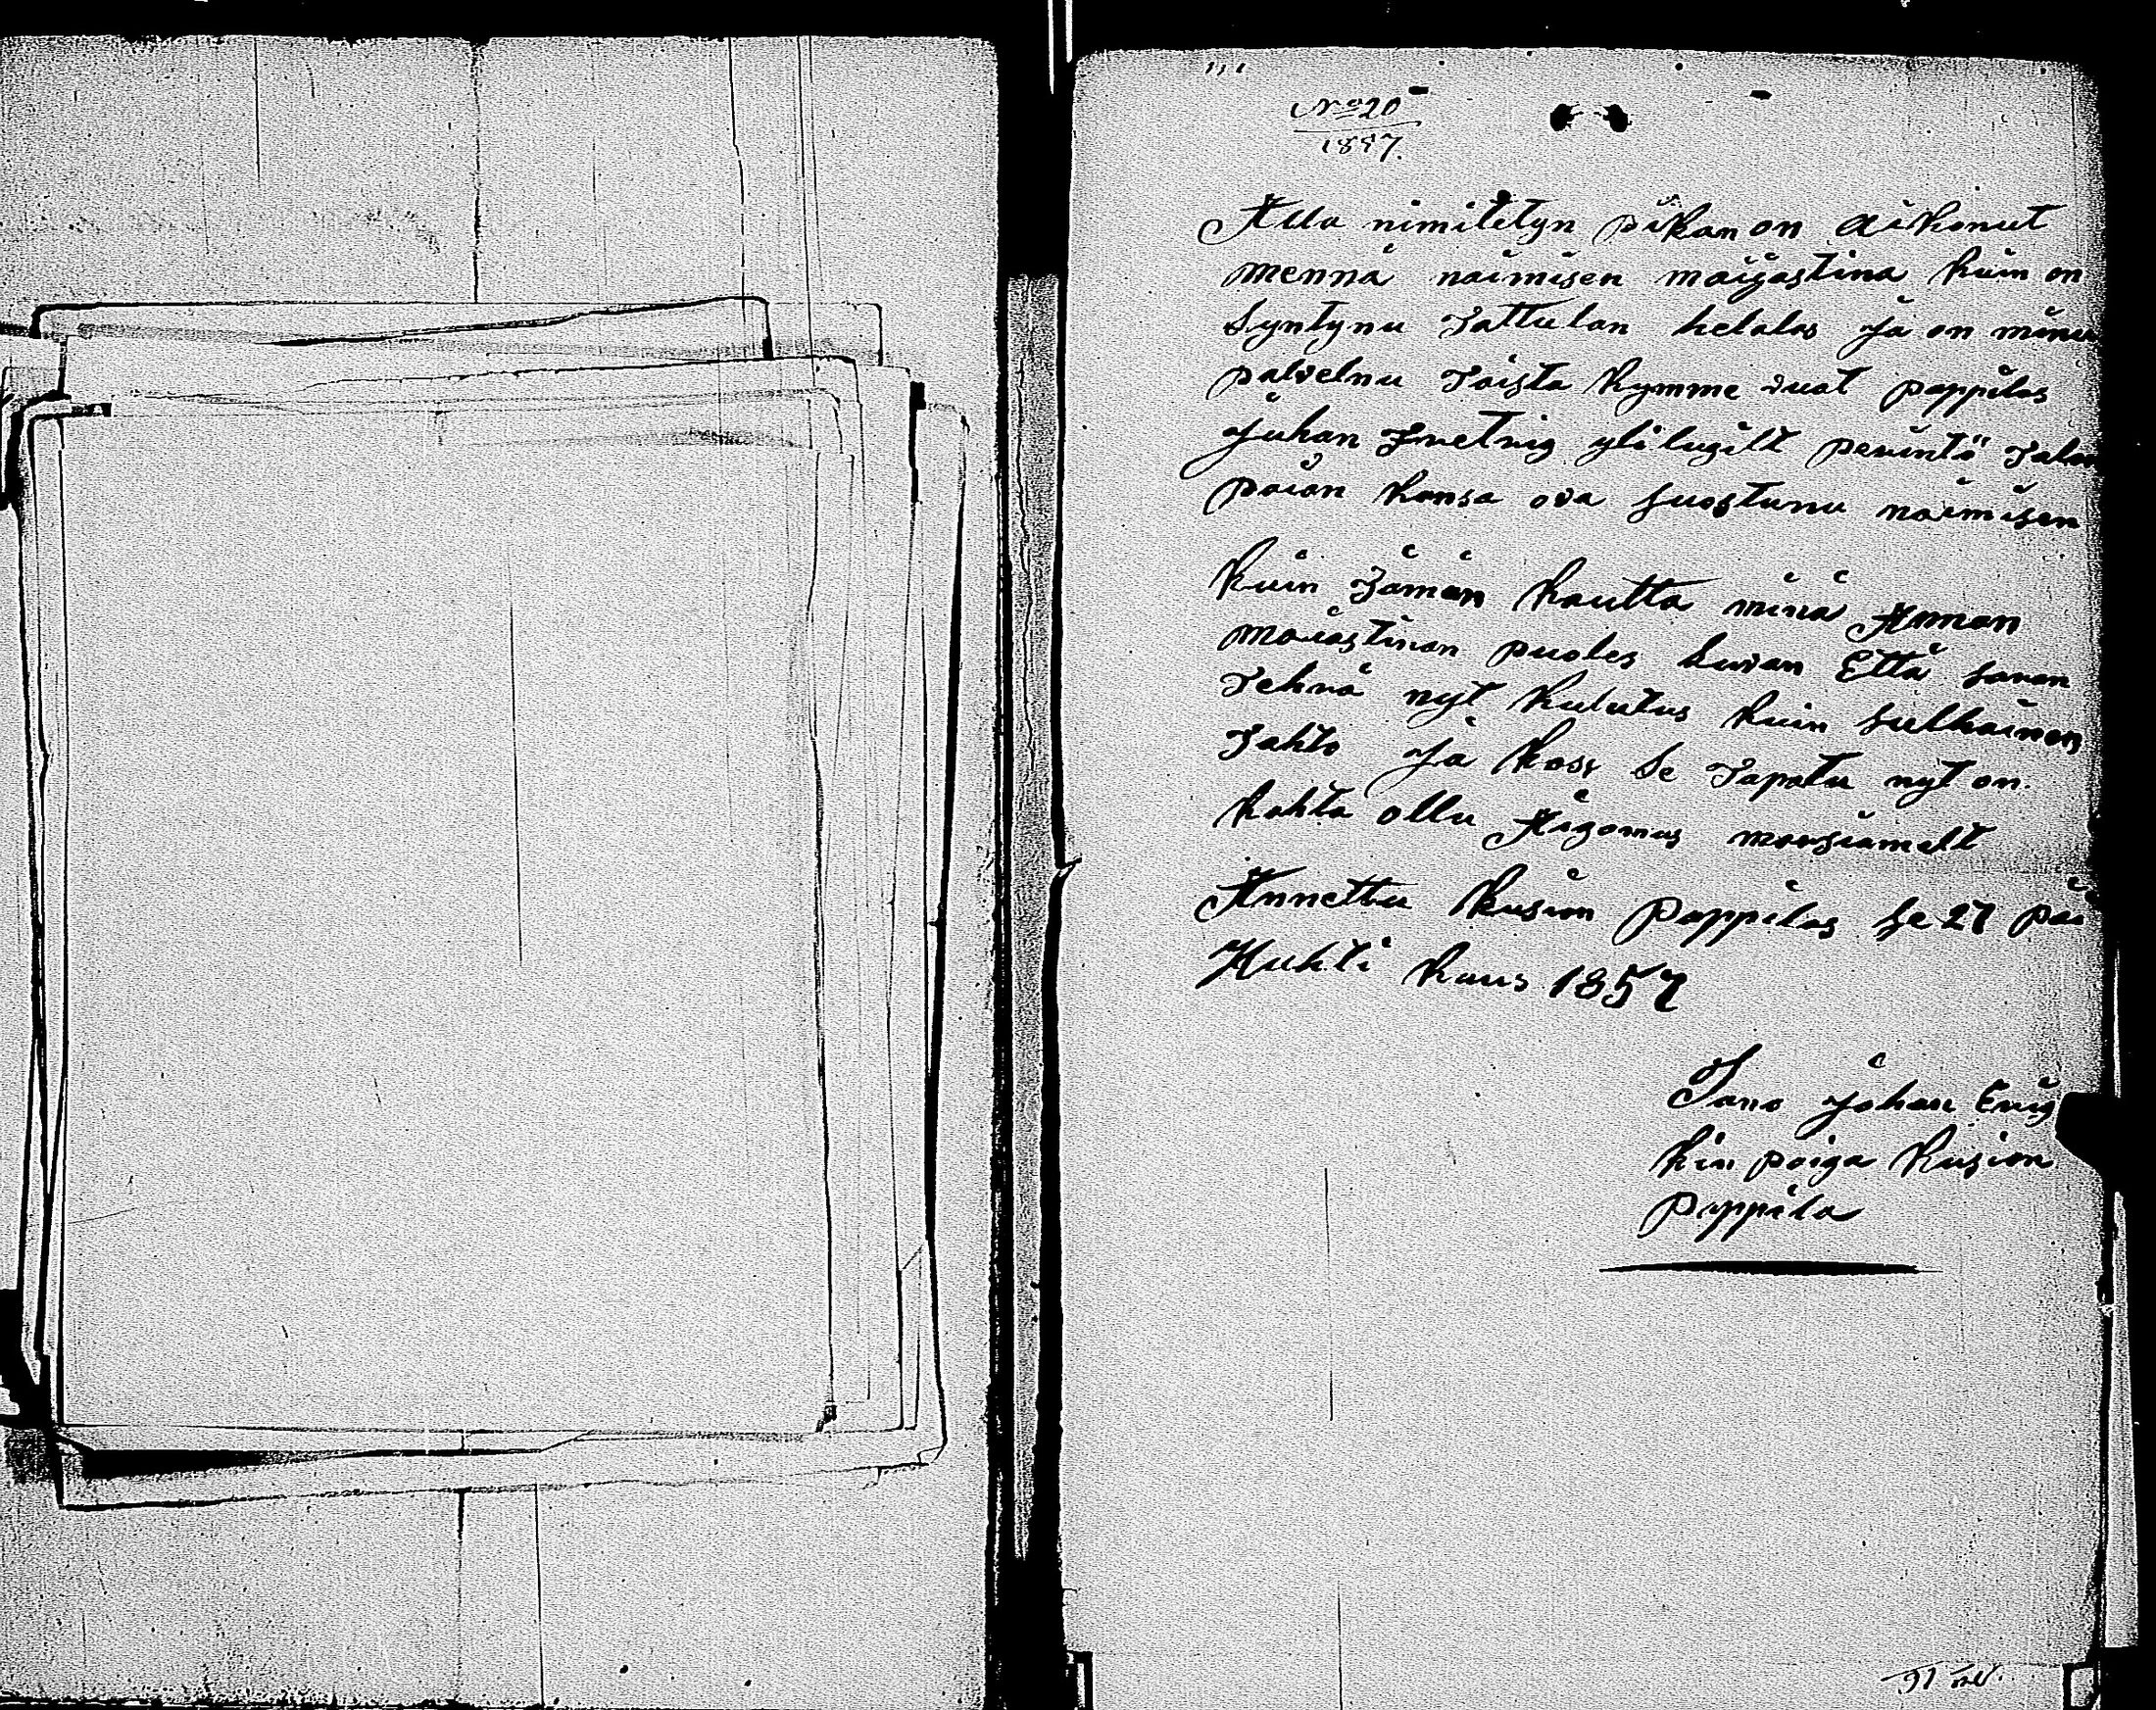 No 20
1857.
Alla nimitetyn pikan on aikonut
mennä naimisen maijastina kuin on
Syntynu Tattulan helalas Ja on minu
palvelnu Toista kymme vuat pappilas
Juhan yli lugilt perintö
poian kansa ova suostunu naimisen
kuin Tämän kautta minä Annan
maiastinan puoles luvan Että sanan
Tehnä nyt kulutus kuin Julkainen
Tahto Ja koss se Tapatu nyt on.
kahta ollu Aigomus morsiamelt
Annettu kusion Pappilas se 27 päi
Huhti kuus 1857
Jano Johan Erig
kin poiga kusion
pappila